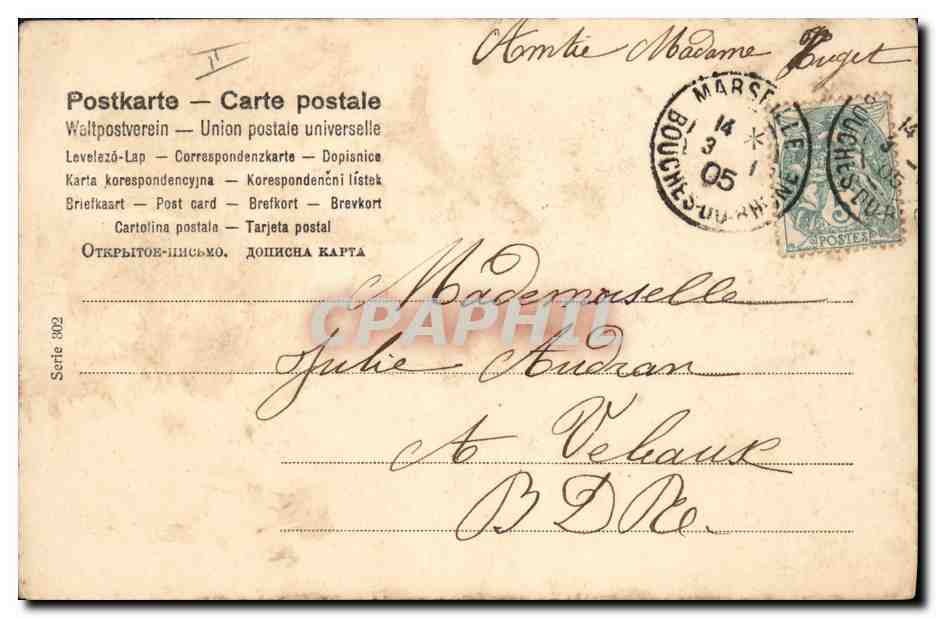 Amtie Madame Huget
Postkarte — Carte postale
Weltpostverein — Union postale universelle
Levelező-Lap — Correspondenzkarte — Dopisnice
Karta korespondencyjna — Korespondenční lístek
Briefkaart — Post card — Brefkort — Brevkort
Cartolina postale — Tarjeta postal
Открытое-письмо, дописна карта
MARSEILLE
14
3 1
05
BOUCHES-DU-RHONE
14
3 1
05
BOUCHES-DU-R
5
POSTES
Mademoiselle
CPAPHIL
Julie Audran
A Velaux
B D Re
Serie 302